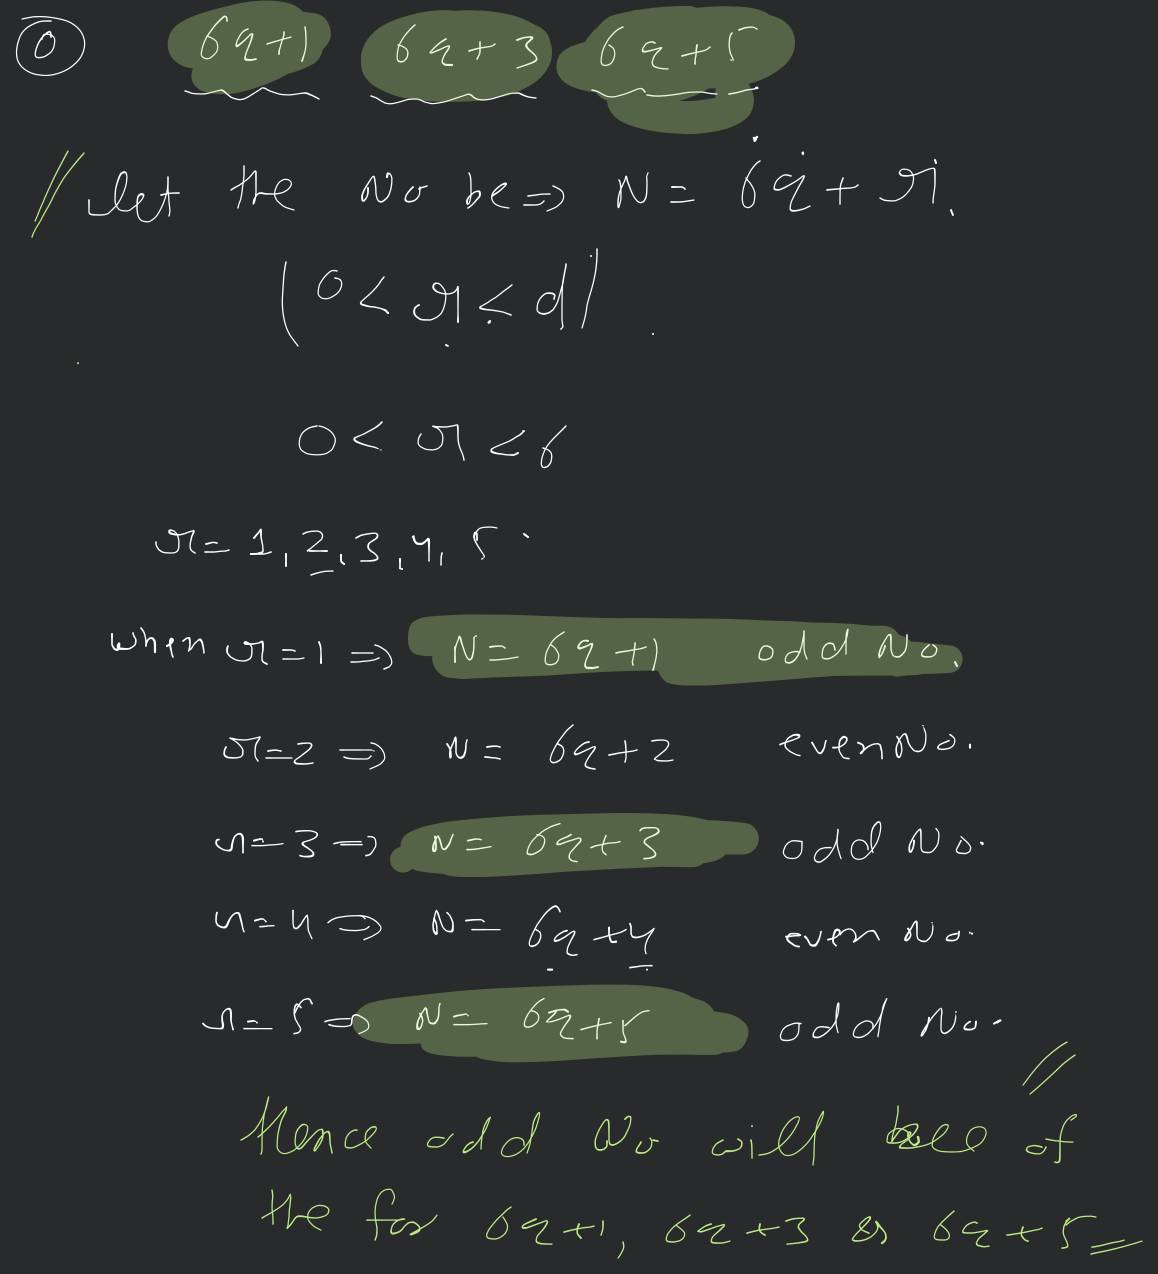 0 6q+1 6q+3 6q+5
let the No be ⇒ N = 6q + r.
(0 < r < d)
0 < r < 6
r = 1, 2, 3, 4, 5.
when r=1 ⇒ N = 6q+1 odd No.
r=2 ⇒ N = 6q+2 even No.
r=3 ⇒ N = 6q+3 odd No.
r=4 ⇒ N = 6q+4 even No.
r=5 ⇒ N = 6q+5 odd No.
Hence odd No will be of
the for 6q+1, 6q+3 or 6q+5